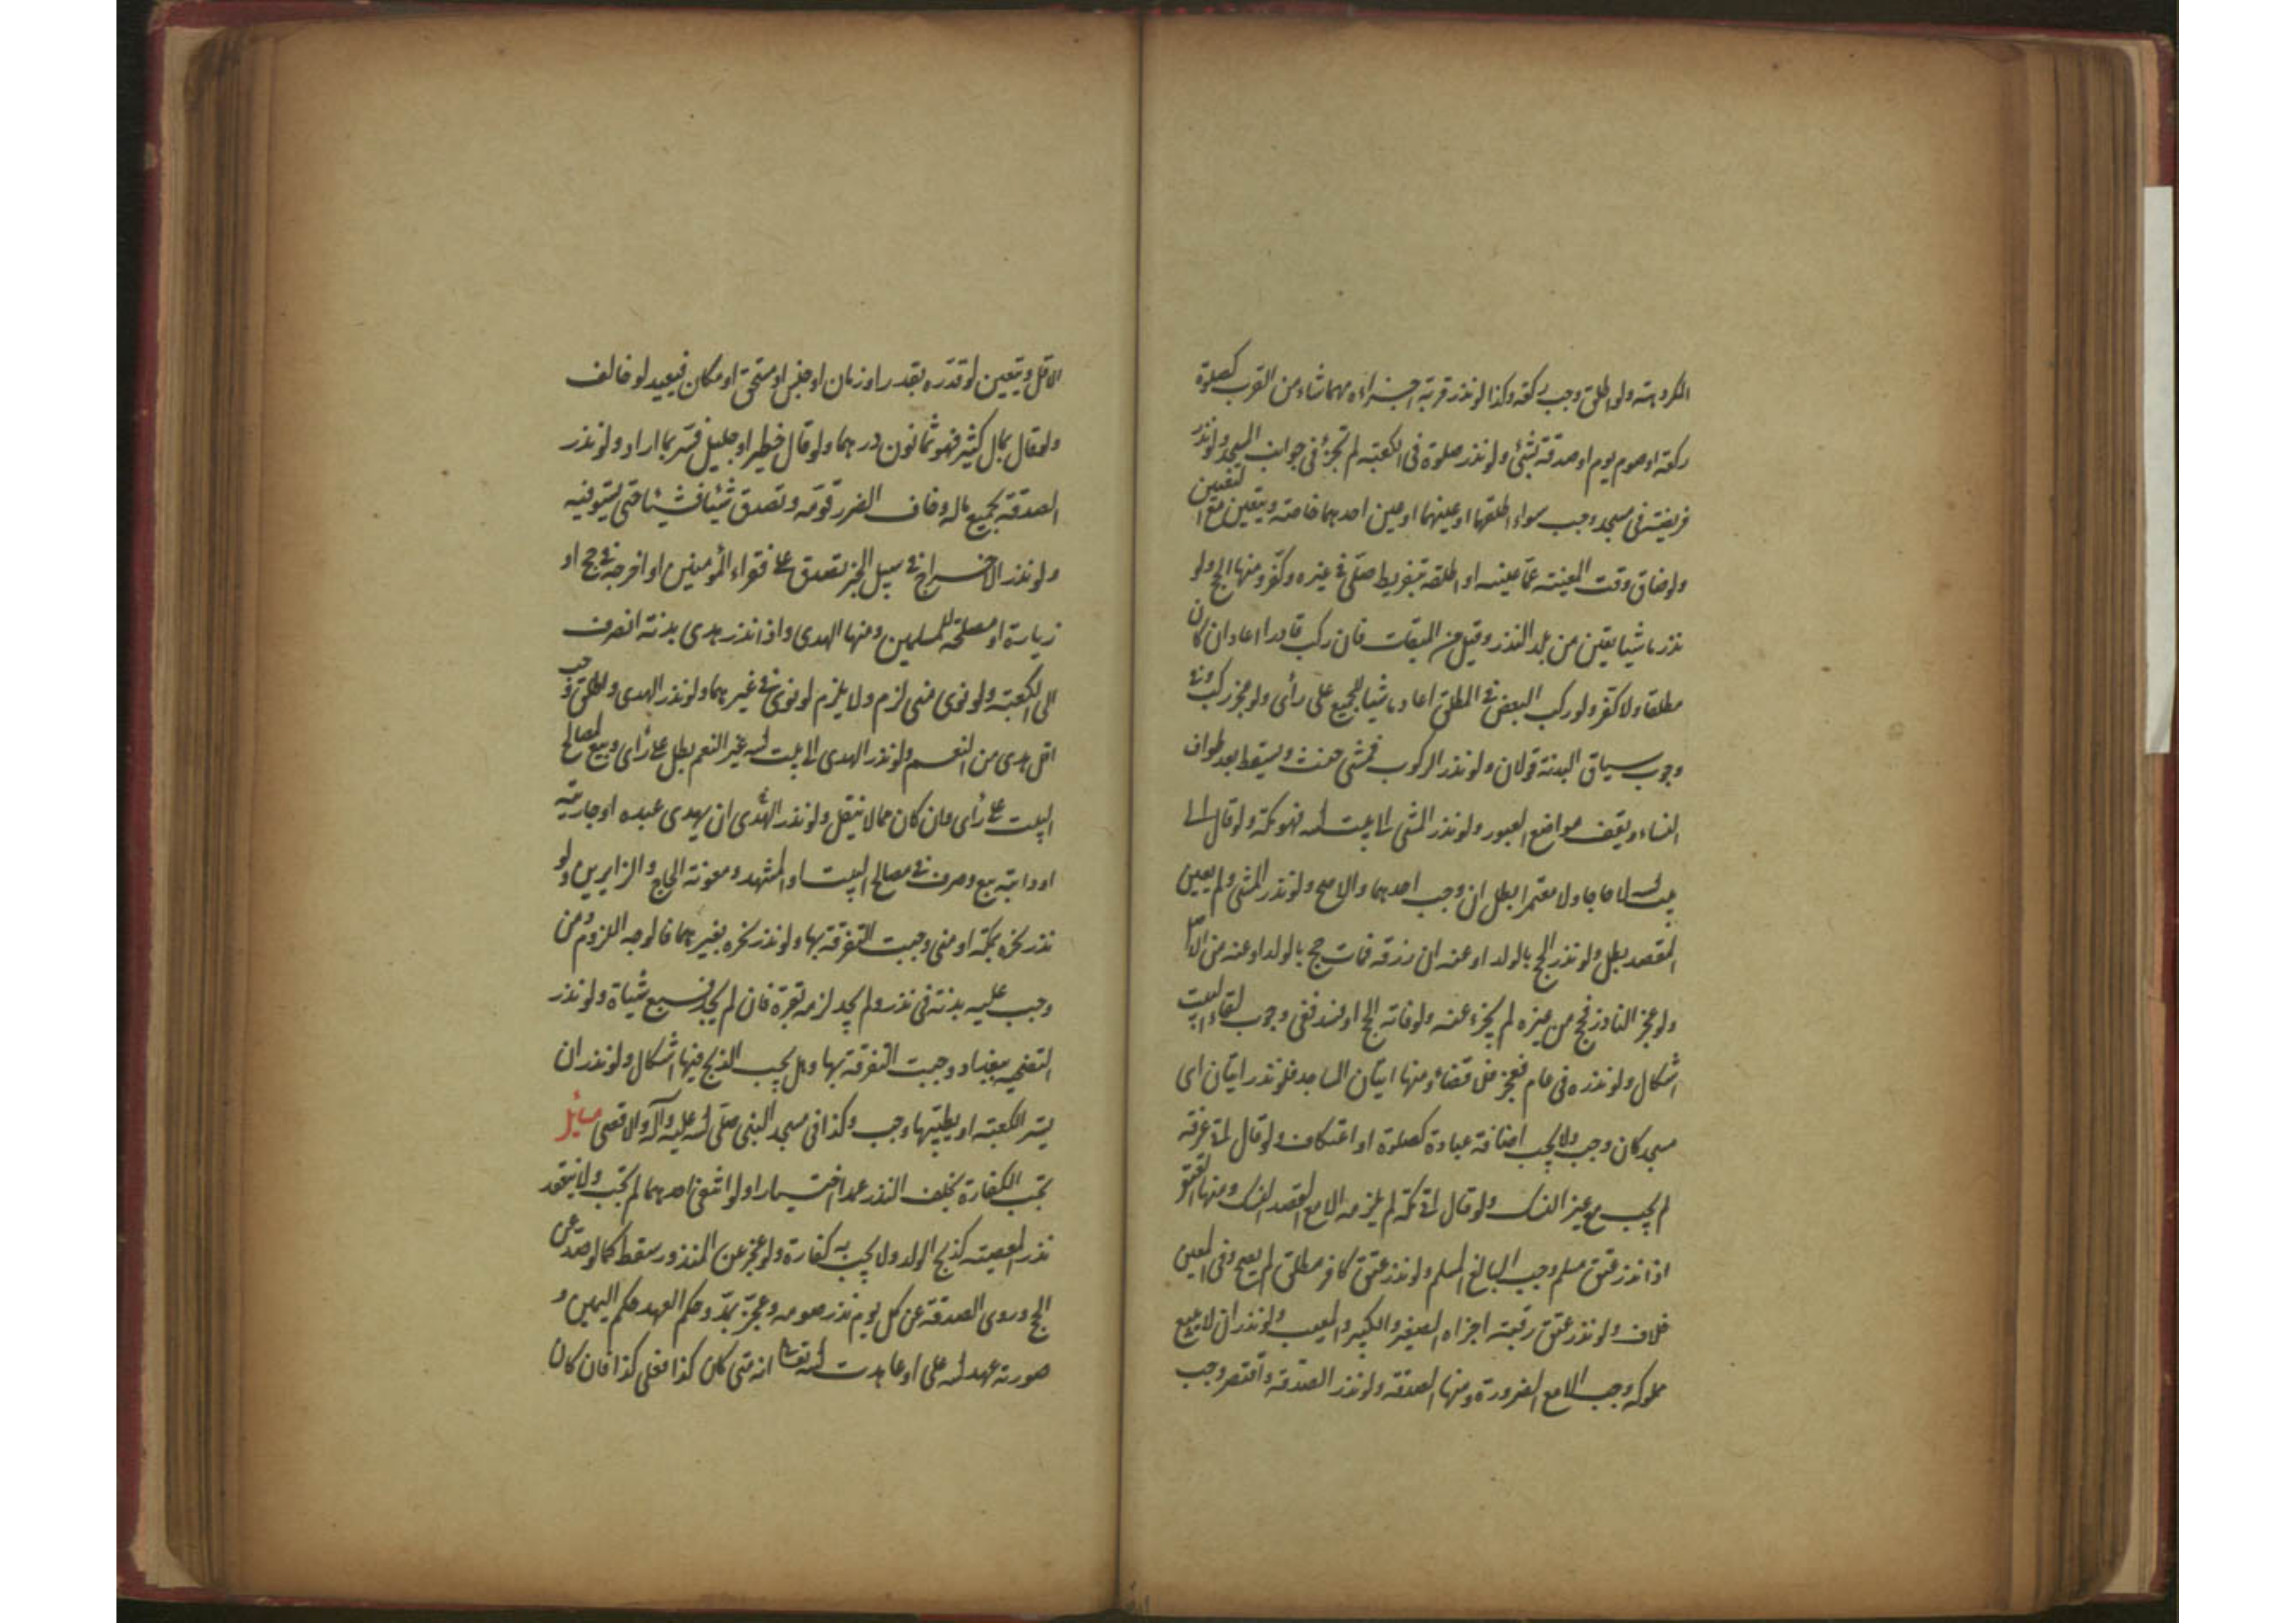 المكروهة ولو اطلق وجب ركعة وكذا لو نذر قربة اجزاه مهما شاء من القرب كصلوة
ركعة او صوم يوم او صدقة بشئ ولو نذر صلوة فى الكعبة لم تجزئ فى جوانب المسجد ولو نذر
فريضة فى مسجد وجب سواء اطلقها او عينها او عين احدهما خاصة ويتعين مع التعيين
ولو ضاق وقت المعينة عما عينه او اطلقه بتفريط صلى فى غيره وكفر ومنها الحج ولو
نذر ماشيا تعين من بلد النذر وقيل من الميقات فان ركب قادرا اعاد ان كان
مطلقا والا كفر ولو ركب البعض فى المطلق اعاد ماشيا للجميع على رأى ولو عجز ركب وفى
وجوب سياق البدنة قولان ولو نذر الركوب فمشى حنث ويسقط بعد طواف
النساء ويقف مواضع العبور ولو نذر المشى الى بيت الله فهو مكة ولو قال الى
بيت الله لا حاجا ولا معتمرا بطل ان وجب احدهما والا صح ولو نذر المشى ولم يعين
المقصد بطل ولو نذر الحج بالولد او عنه ان رزقه فمات حج بالولد او عنه من الاصل
ولو عجز الناذر فحج من غيره لم يجزء عنه ولو فاته الحج او فسد ففى وجوب لقاء البيت
اشكال ولو نذره فى عام فعجز فلا قضاء ومنها اتيان المساجد فلو نذر اتيان اى
مسجد كان وجب ولا يجب اضافة عبادة كصلوة او اعتكاف ولو قال الى عرفة
لم يجب مع غير النسك ولو قال الى مكة لم يلزمه الا مع القصد النسك ومنها العتق
اذا نذر عتق مسلم وجب البالغ المسلم ولو نذر عتق كافر مطلق لم يصح وفى المعين
خلاف ولو نذر عتق رقبة اجزاه الصغير والكبير والمعيب ولو نذر ان لا يبيع
مملوكه وجب الا مع الضرورة ومنها الصدقة ولو نذر الصدقة واقتصر وجب
الاقل ويتعين لو قدره بقدر او زمان او جنس او مستحق او مكان فيعيد لو خالف
ولو قال بمال كثير فهو ثمانون درهما ولو قال خطير او جليل فسر بما اراد ولو نذر
الصدقة بجميع ماله وخاف الضرر قومه وتصدق شيئا فشيئا حتى يستوفيه
ولو نذر الاخراج فى سبيل الخير تصدق على فقراء المؤمنين او اخرجه فى حج او
زيارة او مصلحة للمسلمين ومنها الهدى واذا نذر هدى بدنة انصرف
الى الكعبة ولو نوى منى لزم ولا يلزم لو نوى فى غيرهما ولو نذر الهدى واطلق وجب
اقل هدى من النعم ولو نذر الهدى الى بيت الله غير النعم بطل على رأى وبيع لمصالح
البيت على رأى وان كان مما لا ينقل ولو نذر الهدى ان يهدى عبده او جاريته
او دابته بيع وصرف فى مصالح البيت او المشهد ومعونة الحاج والزايرين ولو
نذر نحره بمكة او منى وجبت التفرقة بها ولو نذر نحره بغيرهما فالوجه اللزوم ومن
وجب عليه بدنة فى نذر ولم يجد لزمه بقرة فان لم يجد فسبع شياة ولو نذر
التضحيه ببغداد وجبت التفرقة بها وهل يجب الذبح فيها اشكال ولو نذر ان
يستر الكعبة او يطيبها وجب وكذا فى مسجد النبى صلى الله عليه وآله والاقصى مسائل
تجب الكفارة بخلف النذر عمدا اختيارا ولو انتفى احدهما لم تجب ولا ينعقد
نذر المعصية كذبح الولد ولا يجب به كفارة ولو عجز عن المنذور سقط كما لو صد عن
الحج وروى الصدقة عن كل يوم نذر صومه وعجز بمد وحكم العهد حكم اليمين و
صورته عهد الله على او عاهدت الله تعالى انه متى كان كذا فعلى كذا فان كان